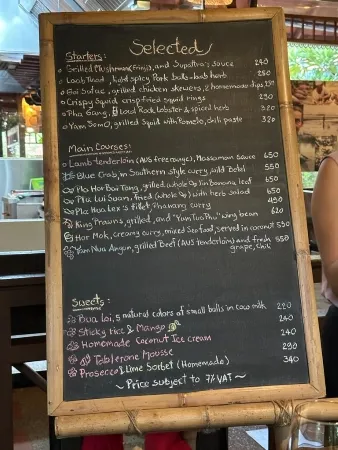 Selected
Starters:
Grilled Mushroom (Eringi), and Supattra's sauce 240
Laab Thod, fried spicy Pork balls-lamb herb 250
Gai Satae, grilled chicken skewers, 2 homemade dips, 250
Crispy Squid crisp-fried squid rings 290
Pha Gang, Local Rock lobster & spiced herb 320
Yam Som O, grilled Squid with Pomelo, chili paste 320
Main Courses:
Lamb tenderloin (AUS free range), Massaman sauce 650
Blue Crab, in Southern style curry, wild Betel 550
Pla Hor Bai Tong, grilled (whole) in Banana leaf 650
Pla Lui Suan, fried (whole) with herb salad 650
Pla Hua Lex's fillet, Phanang curry 490
King Prawns, grilled, and "Yam Tua Phu" wing bean 620
Hor Mok, creamy curry, mixed Seafood, served in coconut 550
Yam Nua Angun, grilled Beef (AUS tenderloin) and fresh 550
grape, chili
Sweets:
Bua loi, 5 natural colors of small balls in cow milk 220
Sticky rice & Mango 240
Homemade Coconut Ice cream 240
Toblerone Mousse 290
Prosecco & Lime Sorbet (Homemade) 340
~ Price subject to 7% VAT ~